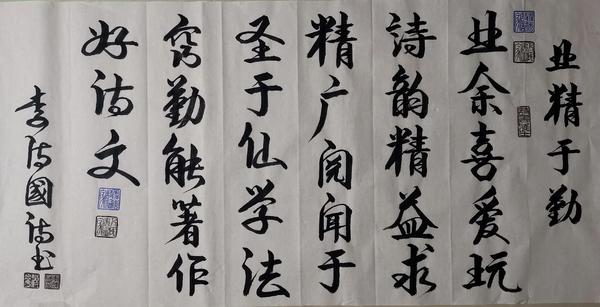 业精于勤
业余喜爱玩
詩韵精益求
精广阅闻于
圣于仙学法
窍勤能著作
好诗文
李國诗书